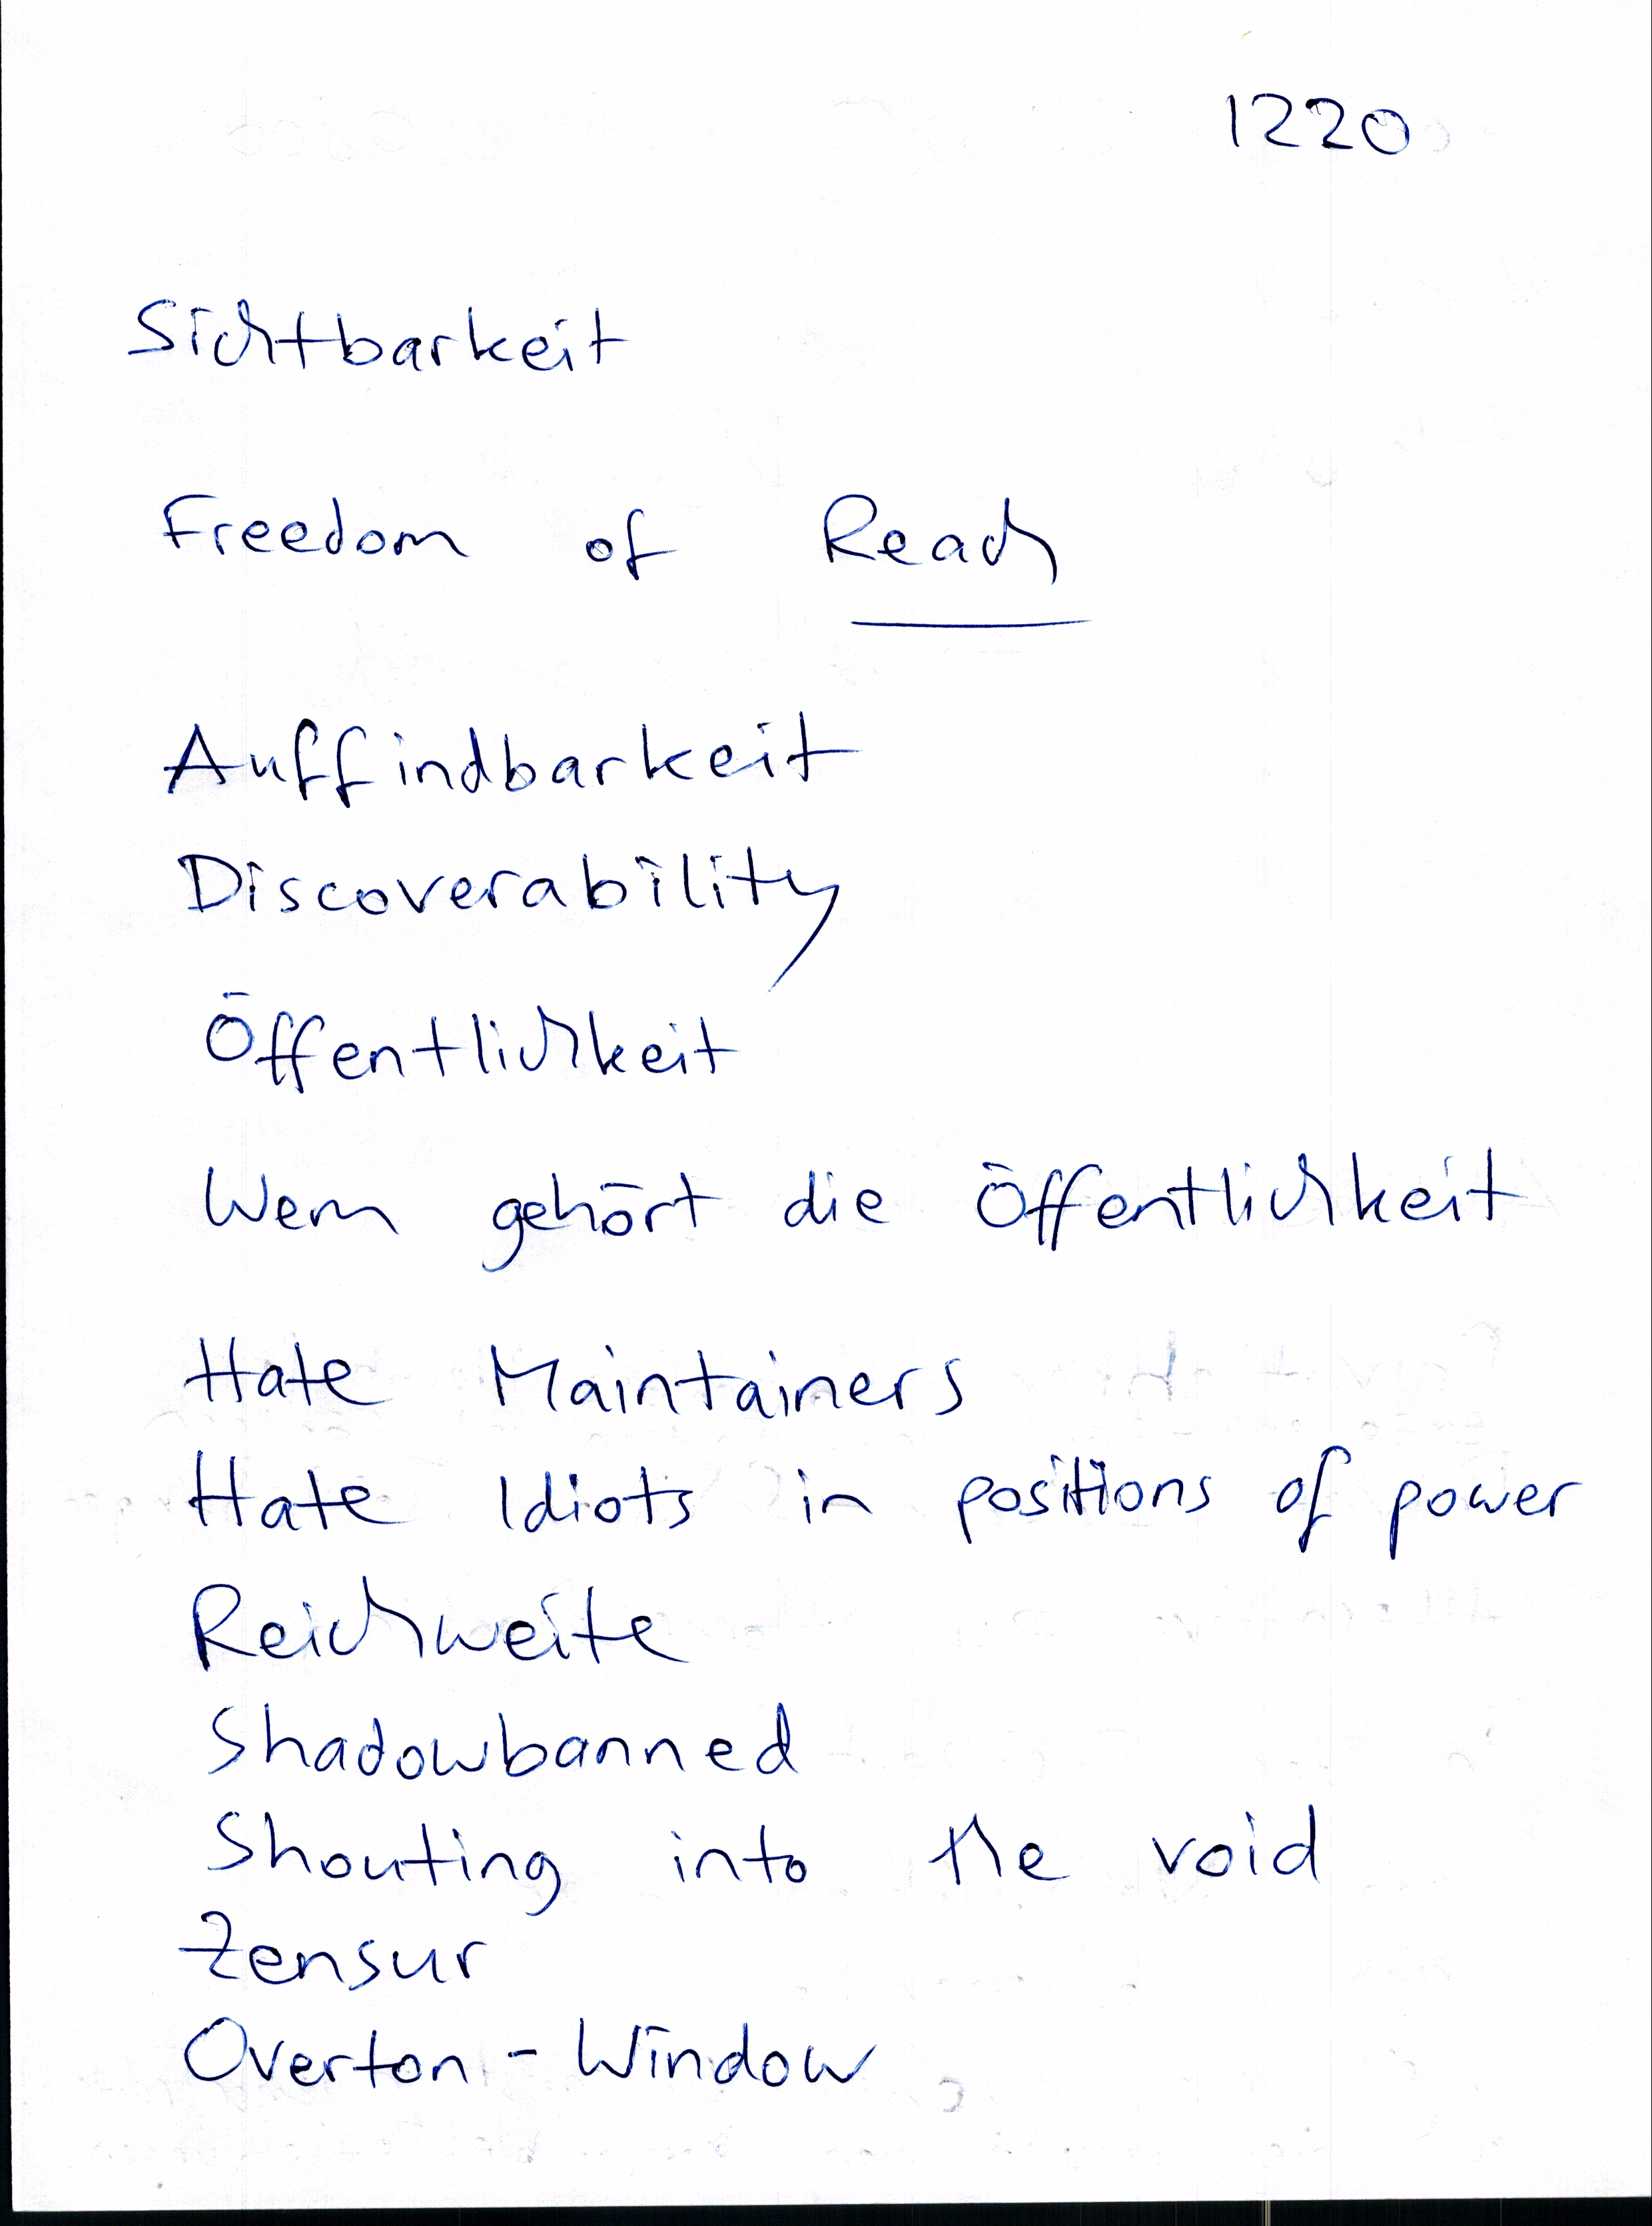 1220
Sichtbarkeit
Freedom of Reach
Auffindbarkeit
Discoverability
Öffentlichkeit
Wem gehört die Öffentlichkeit
Hate Maintainers
Hate Idiots in positions of power
Reichweite
Shadowbanned
Shouting into the void
Zensur
Overton-Window